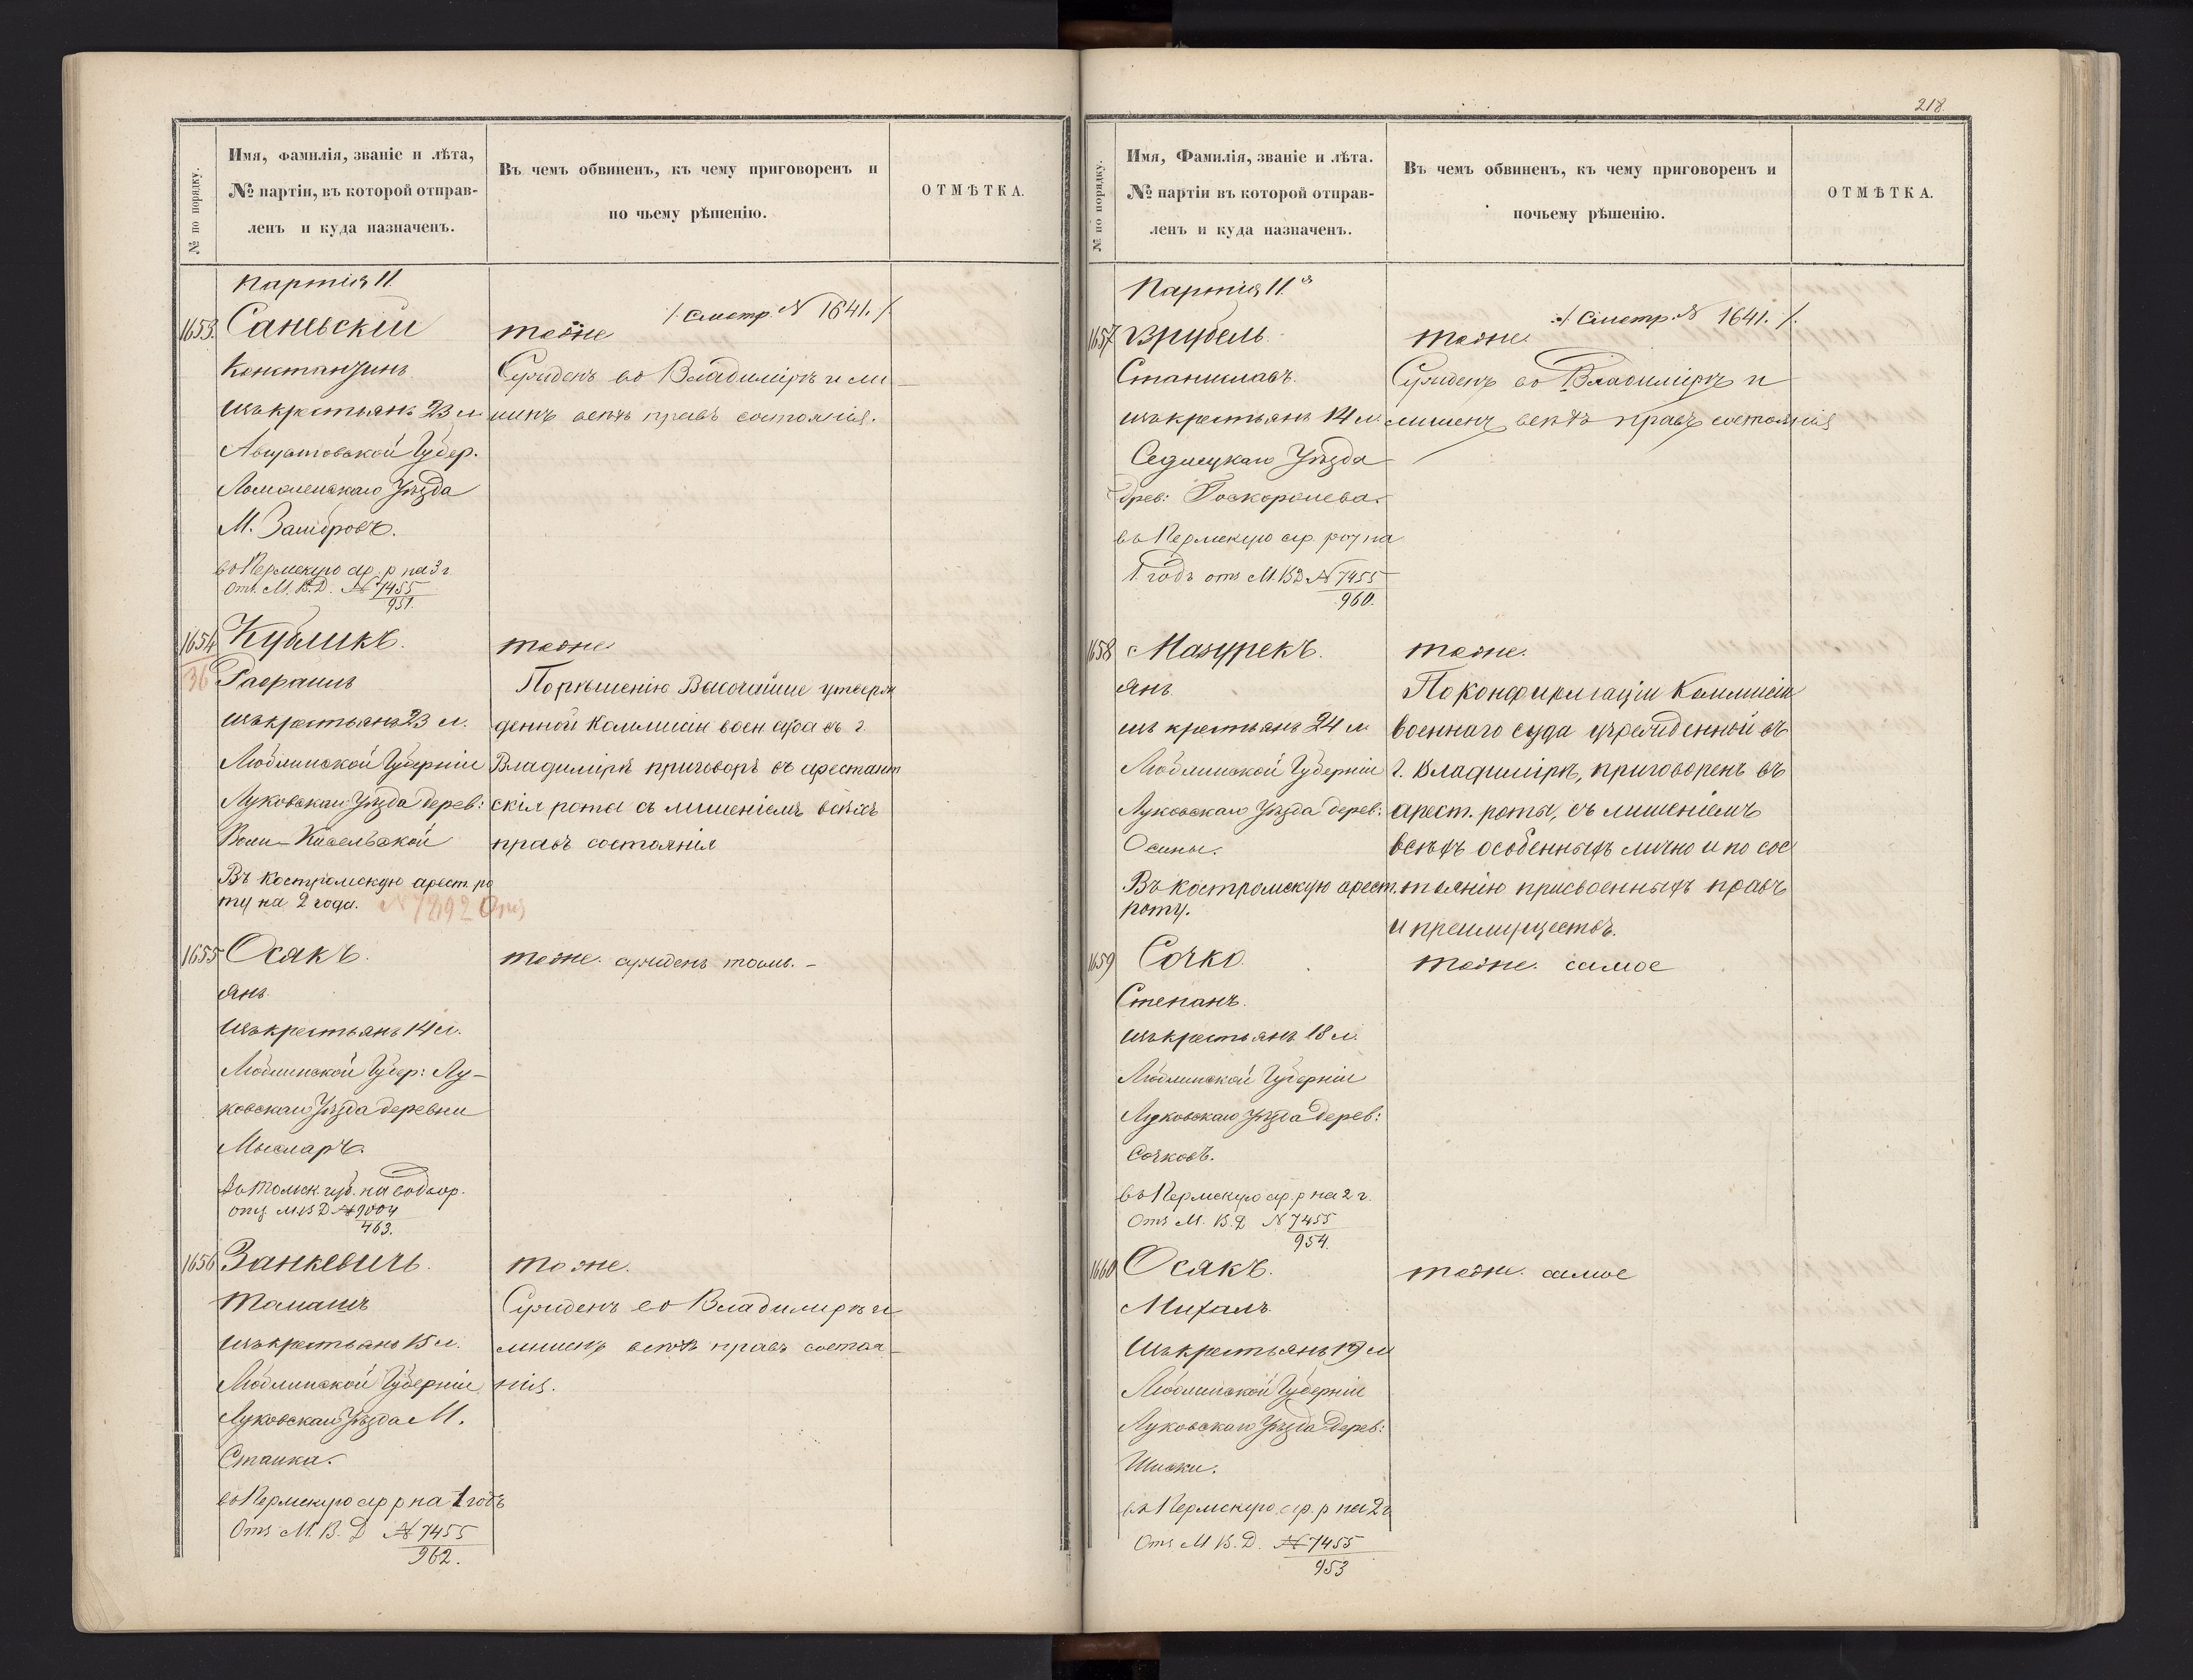 № по порядку.
Имя, фамилія, званіе и лѣта,
№ партіи, въ которой отправ-
ленъ и куда назначенъ.
Въ чемъ обвиненъ, къ чему приговоренъ и
по чьему рѣшенію.
ОТМѢТКА.
Партія 11.
/. Смотр. № 1641. /.
1653. Саньскій тоже
Константинъ Сужденъ во Владимірѣ и ли
изъ крестьянъ 23 л шенъ всѣхъ правъ состоянія.
Августовской Губер.
Ломженскаго Уѣзда
М. Замбровъ.
во Пермскую ар. р на 3 г
отъ М. В. Д. № 7455
951.
1654 Кубликъ. тоже
36 Рафаилъ По рѣшенію Высочайше утверж
изъ крестьянъ 23 л. денной Коммисіи воен суда въ г.
Люблинской Губерніи Владимірѣ приговоръ въ арестант
Луковскаго Уѣзда дерев: скія роты съ лишеніемъ всѣхъ
Воли-Кисельской правъ состоянія
Въ Костромскую арест. ро
ту на 2 года. № 7892
1655 Осякъ. тоже. сужденъ тамъ. -
Янъ.
изъ крестьянъ 14 л.
Люблинской Губер: Лу-
ковскаго Уѣзда деревни
Мысларъ.
въ Томск. губ. на водвор.
отъ М В Д № 9004
463.
1656 Занкевичъ. тоже.
Томашъ Сужденъ во Владимирѣ и
изъ крестьянъ 15 л. лишенъ всѣхъ правъ состоя-
Люблинской Губерніи нія.
Луковскаго Уѣзда М.
Станка.
во Пермскую ар р на 1 годъ
Отъ М. В. Д № 7455
962.
218.
№ по порядку.
Имя, Фамилія, званіе и лѣта.
№ партіи въ которой отправ-
ленъ и куда назначенъ.
Въ чемъ обвиненъ, къ чему приговоренъ и
почьему рѣшенію.
ОТМѢТКА.
Партія 11я
/. Смотр. № 1641. /.
1657 Врубель. тоже.
Станиславъ. Сужденъ во Владимірѣ и
изъ крестьянъ 14 л. лишенъ всѣхъ правъ состоянія
Седлецкаго Уѣзда
Древ: Госкоролева.
въ Пермскую ар. рот на
1. годъ отъ М. В Д № 7455
960.
1658 Мазурекъ. тоже.
Янъ. По конфирмаціи Коммисіи
изъ крестьянъ 24 л. военнаго суда учрежденной въ
Люблинской Губерніи г. Владимірѣ, приговоренъ въ
Луковскаго Уѣзда дерев: арест. роты, съ лишеніемъ
Осины. всѣхъ особенныхъ лично и по сос
Въ Костромскую арест. тоянію присвоенныхъ правъ
роту.
и преимуществъ.
1659 Сочко. тоже. самое
Степанъ.
изъ крестьянъ 18 л.
Люблинской Губерніи
Луковскаго Уѣзда дерев:
Сочковъ.
въ Пермскую ар. р на 2 г.
Отъ М. В. Д № 7455
954.
1660 Осякъ. тоже. самое
Михалъ
Изъ крестьянъ 19 л
Люблинской Губерніи
Луковскаго Уѣзда дерев:
Шиски.
въ Пермскую ар. р на 2 г.
Отъ М В. Д. № 7455
953